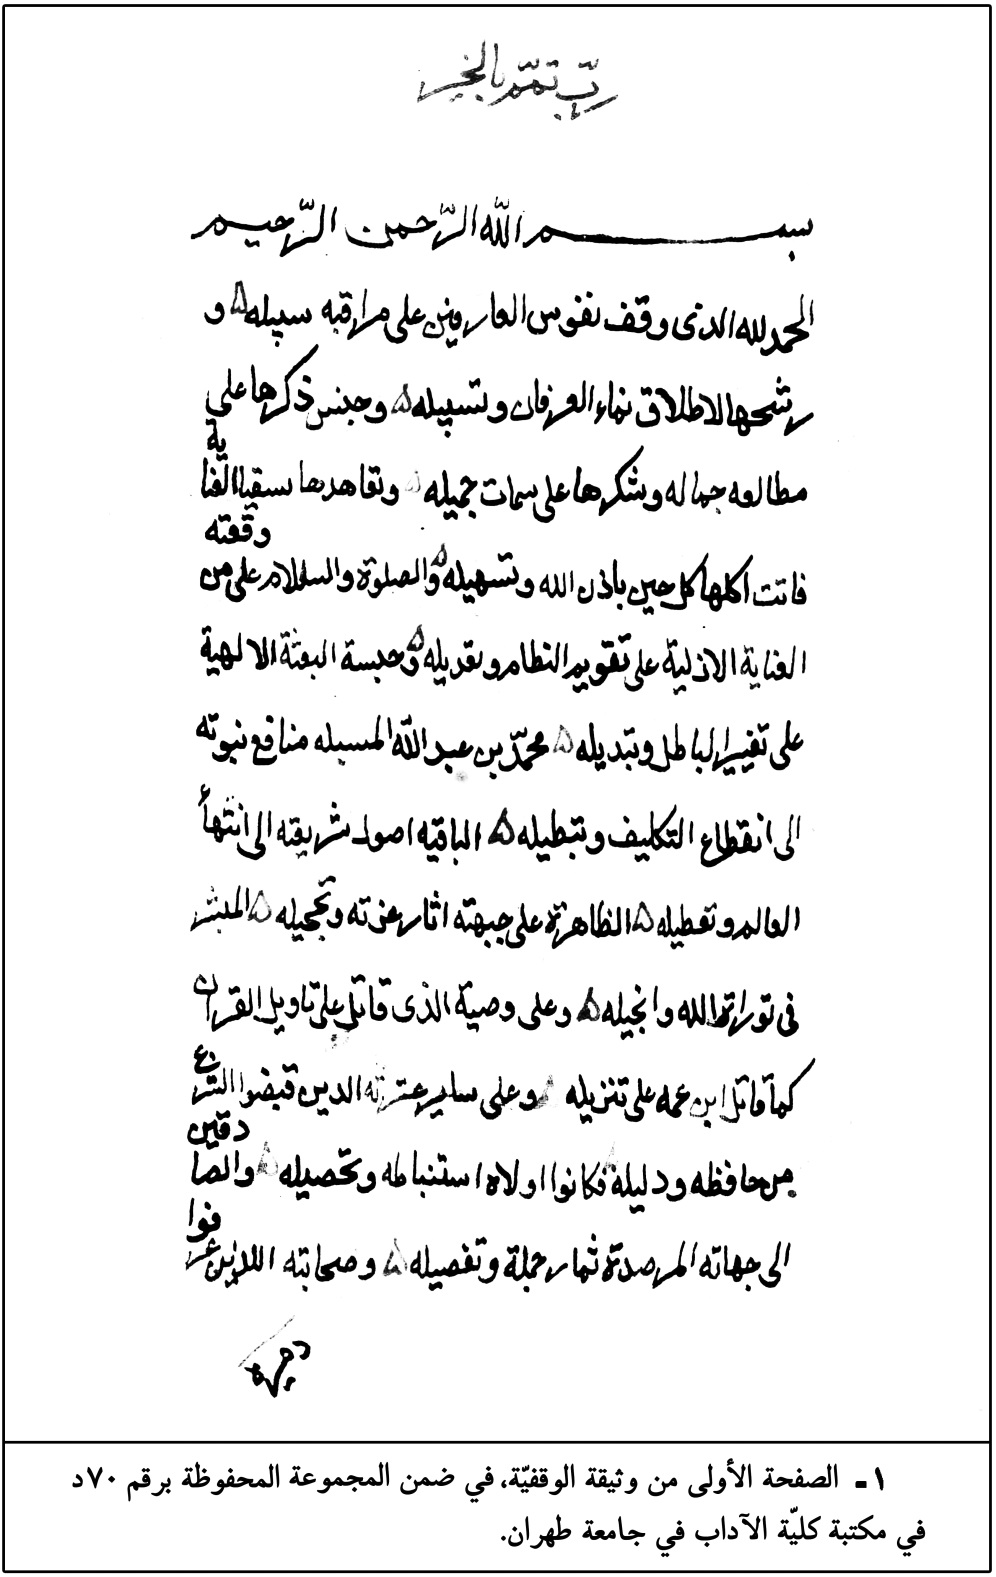 ربّ تمّم بالخير
بسم الله الرّحمن الرّحيم
الحمد لله الذى وقف نفوس العارفين على مراقبه سبيله ۵ و
رشحها لاطلاق نماء العرفان وتسبيله ۵ وحبس ذكرها على
مطالعه جماله وشكرها على سمات جميله ۵ وتعاهدها بسقيا العنا
ية
فاتت اكلها كل حين باذن الله وتسهيله ۵ والصلوة والسلام على من
وقفته
العناية الازلية على تقويم النظام وتعديله ۵ وحبسة البعثة الالهية
على تغيير الباطل وتبديله ۵ محمّد بن عبد الله المسبله منافع نبوته
الى انقطاع التكليف وتبطيله ۵ الباقيه اصول شريعته الى انتهاء
العالم وتعطيله ۵ الظاهرة على جبهته اثار عزته وتجيله ۵ المبشر
فى توراة الله وانجيله ۵ وعلى وصية الذى قاتل على تاويل القران
كما قاتل ابن عمه على تنزيله ۵ وعلى ساير عترته الذين قبضوا الشر
ع
من حافظه ودليله ۵ فكانوا اولاه استنباطه وتحصيله ۵ والصا
دقين
الى جهاته المرصدة ثمار جملة وتفصيله ۵ وصحابته الذين عر
فوا
۱ـ الصفحة الأولى من وثيقة الوقفيّة، في ضمن المجموعة المحفوظة برقم ۷۰د
في مكتبة كليّة الآداب في جامعة طهران.